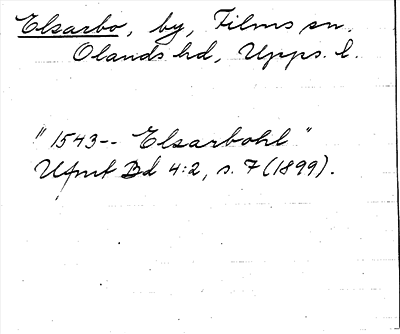 Elsarbo, by, Films sn.
Olands hd, Upps. l.
"1543-- Elsarbohl"
Ufmt Bd 4:2, s. 7 (1899).